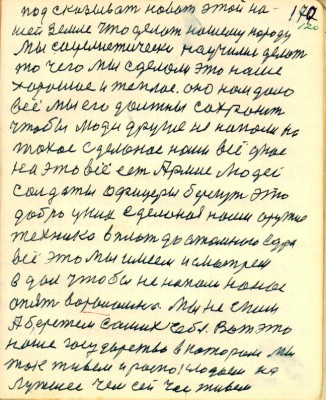 подсказыват новат этой на-
шей земле что делат нашему народу
мы социлистически научилис делат
то чего мы сделали это наше
хорошое и теплае. оно нам дано
всё мы его должны сохранит
чтобы люди другие не напали на
такое сделаное нами всё
на это всё ест Армие людей
солдаты офицеры берегут это
добро у них сделаная нами оружие
техника вплот до атамного едра
всё это мы имеем и смотрем
в дал чтобы не напали на нас
опят вораломно. мы не спим
А бережем самих себя. Вот это
наше государство в катором мы
так живем и распологаем на
лутшее чем сей час живем